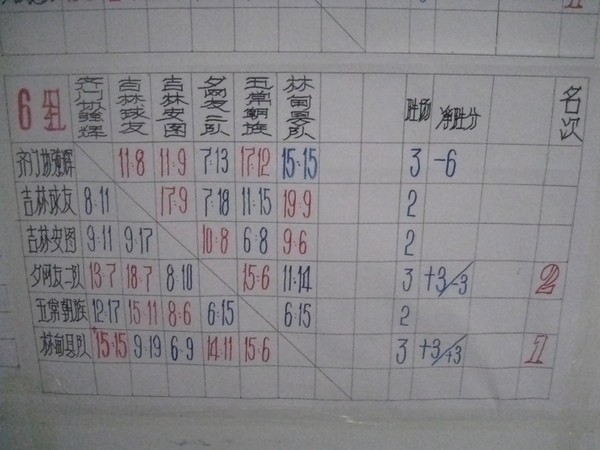 6组 吉林球友 吉林安图 夕网友二队 五常朝族 林甸县队 胜场 净胜分 名次
11:8 11:9 7:13 17:12 15:15 3 -6
吉林球友 8:11 17:9 7:18 11:15 19:9 2
吉林安图 9:11 9:17 10:8 6:8 9:6 2
夕网友二队 13:7 18:7 8:10 15:6 11:14 3 +3/-3 2
五常朝族 12:17 15:11 8:6 6:15 6:15 2
林甸县队 15:15 9:19 6:9 14:11 15:6 3 +3/+3 1